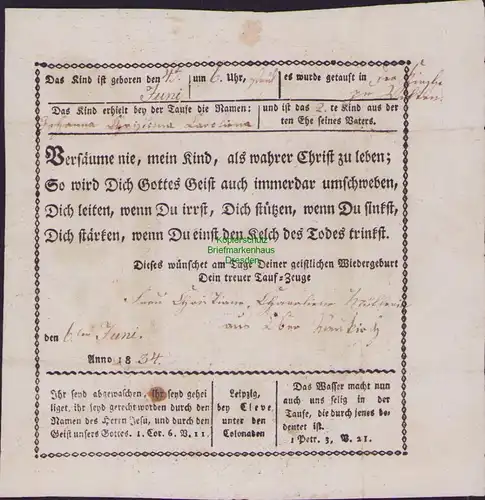 Das Kind ist geboren den 4ten um 6. Uhr, es wurde getauft in der Kirche
Juni zu
Das Kind erhielt bey der Taufe die Namen: und ist das 2.te Kind aus der
Johanna Carolina ten Ehe seines Vaters.
Versäume nie, mein Kind, als wahrer Christ zu leben;
So wird Dich Gottes Geist auch immerdar umschweben,
Dich leiten, wenn Du irrst, Dich stützen, wenn Du sinkst,
Dich stärken, wenn Du einst den Kelch des Todes trinkst.
Kopierschutz
Briefmarkenhaus
Dresden
Dieses wünschet am Tage Deiner geistlichen Wiedergeburt
Dein treuer Tauf-Zeuge
Frau Christiane
aus Ober
den 6ten Juni.
Anno 1834.
Ihr seyd abgewaschen, ihr seyd gehei
liget, ihr seyd gerecht worden durch den
Namen des Herrn Jesu, und durch den
Geist unsers Gottes. 1. Cor. 6. V. 11.
Leipzig,
bey Cleve
unter den
Colonaden
Das Wasser macht nun
auch uns selig in der
Taufe, die durch jenes be-
deutet ist.
1 Petr. 3, V. 21.